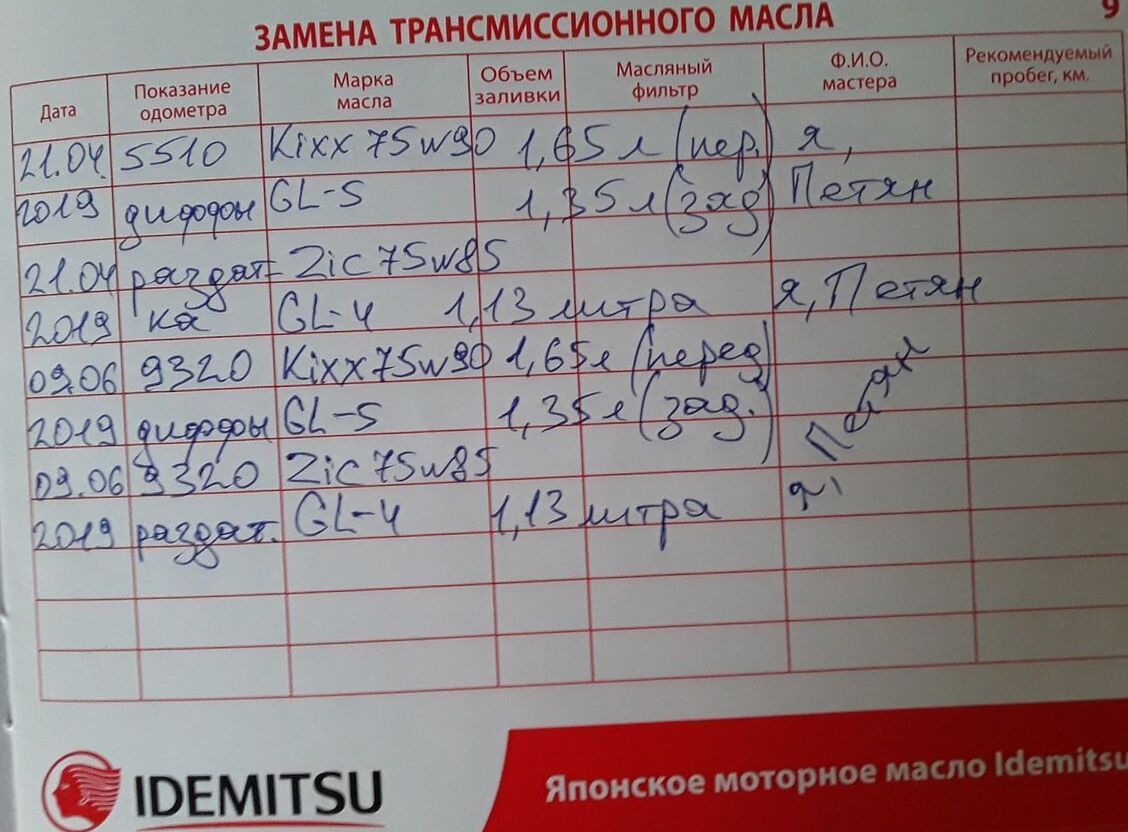 ЗАМЕНА ТРАНСМИССИОННОГО МАСЛА 9
Дата Показание одометра Марка масла Объем заливки Масляный фильтр Ф.И.О. мастера Рекомендуемый пробег, км.
21.04. 5510 Kixx 75w90 1,65 л (пер.) я,
2019 дифодоы GL-5 1,35 л (зад) Петян
21.04 раздат- Zic 75w85
2019 ка GL-4 1,13 литра я, Петян
09.06 9320 Kixx 75w90 1,65л (перед)
2019 дифоры GL-5 1,35л (зад.) Петян
09.06 9320 Zic 75w85
2019 раздат. GL-4 1,13 литра я,
IDEMITSU
Японское моторное масло Idemitsu